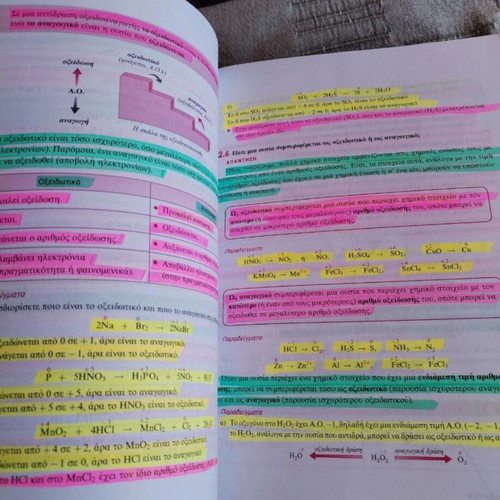 Σε μια αντίδραση οξειδοαναγωγής το οξειδωτικό
ενώ το αναγωγικό είναι η ουσία που οξειδώνεται.
οξείδωση
Α.Ο.
αναγωγή
οξειδωτικό
(ανάγεται, Α.Ο.↓)
αναγωγικό
Η σκάλα της οξειδοαναγωγής
οξειδωτικό είναι τόσο ισχυρότερο, όσο μεγαλύτερη
ηλεκτρονίων). Παρόμοια, ένα αναγωγικό είναι τόσο
να οξειδωθεί (αποβολή ηλεκτρονίων).
Οξειδωτικό
καλεί οξείδωση.
• Προκαλεί
εται.
• Οξειδώνεται.
ώνεται ο αριθμός οξείδωσης.
• Αυξάνεται ο αριθμός
λαμβάνει ηλεκτρόνια
• Αποβάλλει
πραγματικότητα ή φαινομενικά).
(στην πραγματικότητα
δείγματα
σδιορίσετε ποιο είναι το οξειδωτικό και ποιο το αναγωγικό στις
2Na + Br₂ → 2NaBr
ξειδώνεται από 0 σε +1, άρα είναι το αναγωγικό.
νάγεται από 0 σε −1, άρα είναι το οξειδωτικό.
P + 5HNO₃ → H₃PO₄ + 5NO₂ + H₂O
ειδώνεται από 0 σε +5, άρα είναι το αναγωγικό.
γεται από +5 σε +4, άρα το HNO₃ είναι το οξειδωτικό.
MnO₂ + 4HCl → MnCl₂ + Cl₂ + 2H₂O
γεται από +4 σε +2, άρα το MnO₂ είναι το οξειδωτικό.
ειδώνεται από −1 σε 0, άρα το HCl είναι το αναγωγικό.
το HCl και στο MnCl₂ έχει τον ίδιο αριθμό οξείδωσης
SO₂ + 2H₂S → 3S + 2H₂O
Το S στο SO₂ ανάγεται από +4 σε 0, άρα το SO₂ είναι το οξειδωτικό.
Το S στο H₂S οξειδώνεται από −2 σε 0, άρα το H₂S είναι το αναγωγικό.
2.6 Πότε μια ουσία συμπεριφέρεται ως οξειδωτικό ή ως αναγωγικό;
ΑΠΑΝΤΗΣΗ
Ως οξειδωτικό συμπεριφέρεται μια ουσία που περιέχει χημικό στοιχείο με τον
ανώτερο (ή έναν από τους μεγαλύτερους) αριθμό οξείδωσής του, οπότε μπορεί να
αναχθεί σε μικρότερο αριθμό οξείδωσης.
Παραδείγματα
HNO₃ → NO₂ ή NO, H₂SO₄ → SO₂, CuO → Cu
KMnO₄ → Mn²⁺, FeCl₃ → FeCl₂, SnCl₄ → SnCl₂
Ως αναγωγικό συμπεριφέρεται μια ουσία που περιέχει χημικό στοιχείο με τον
κατώτερο (ή έναν από τους μικρότερους) αριθμό οξείδωσής του, οπότε μπορεί να
οξειδωθεί σε μεγαλύτερο αριθμό οξείδωσης.
Παραδείγματα
HCl → Cl₂, H₂S → S, NH₃ → N₂
Zn → Zn²⁺, Al → Al³⁺, FeCl₂ → FeCl₃
Όταν μια ουσία περιέχει ένα χημικό στοιχείο που έχει μια ενδιάμεση τιμή αριθμού
μπορεί να συμπεριφέρεται τόσο ως οξειδωτικό (παρουσία ισχυρότερου αναγωγικού)
και ως αναγωγικό (παρουσία ισχυρότερου οξειδωτικού).
Παραδείγματα
α) Το οξυγόνο στο H₂O₂ έχει Α.Ο. −1, δηλαδή έχει μια ενδιάμεση τιμή Α.Ο. (−2, −1,
το H₂O₂, ανάλογα με την ουσία που αντιδρά, μπορεί να δράσει ως οξειδωτικό ή ως
H₂O οξειδωτική δράση H₂O₂ αναγωγική δράση O₂